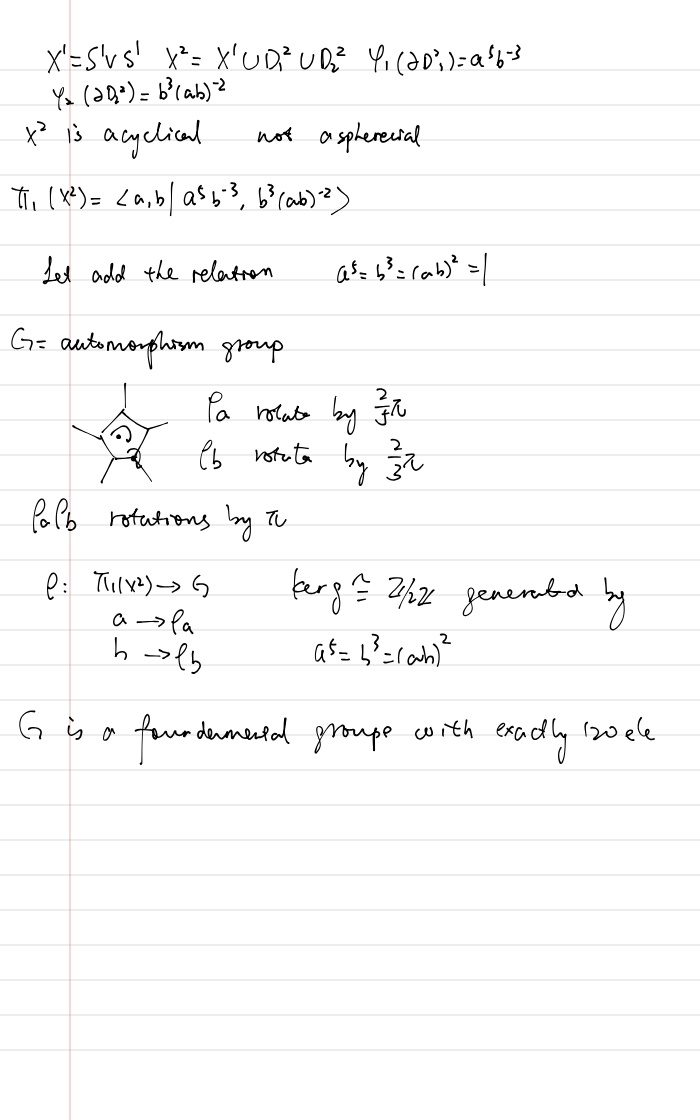 X¹=S¹∨S¹ X²= X¹∪D₁²∪D₂² φ₁(∂D₁²)=a⁵b⁻³
φ₂(∂D₂²)=b³(ab)⁻²
X² is acyclical not aspherecial
π₁(X²)=<a,b|a⁵b⁻³, b³(ab)⁻²>
Let add the relation a⁵=b³=(ab)²=1
G= automorphism group
ρa rotate by 2/5π
ρb rotate by 2/3π
ρaρb rotations by π
ρ: π₁(X²)→G ker ρ ≅ Z/2Z generated by
a→ρa
b→ρb a⁵=b³=(ab)²
G is a groupe with exactly 120 ele